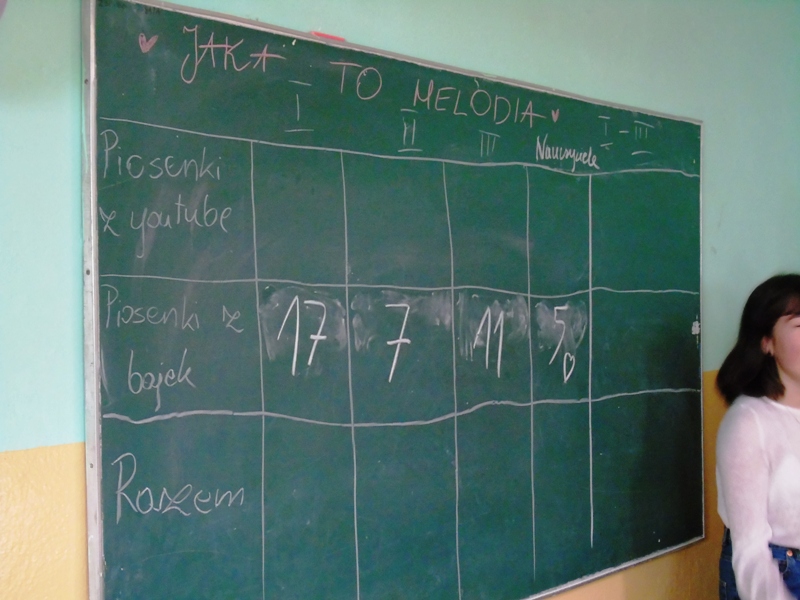 JAKA TO MELODIA
I II III Nauczyciele I - III
Piosenki
z youtube
Piosenki z 17 7 11 5
bajek
Razem